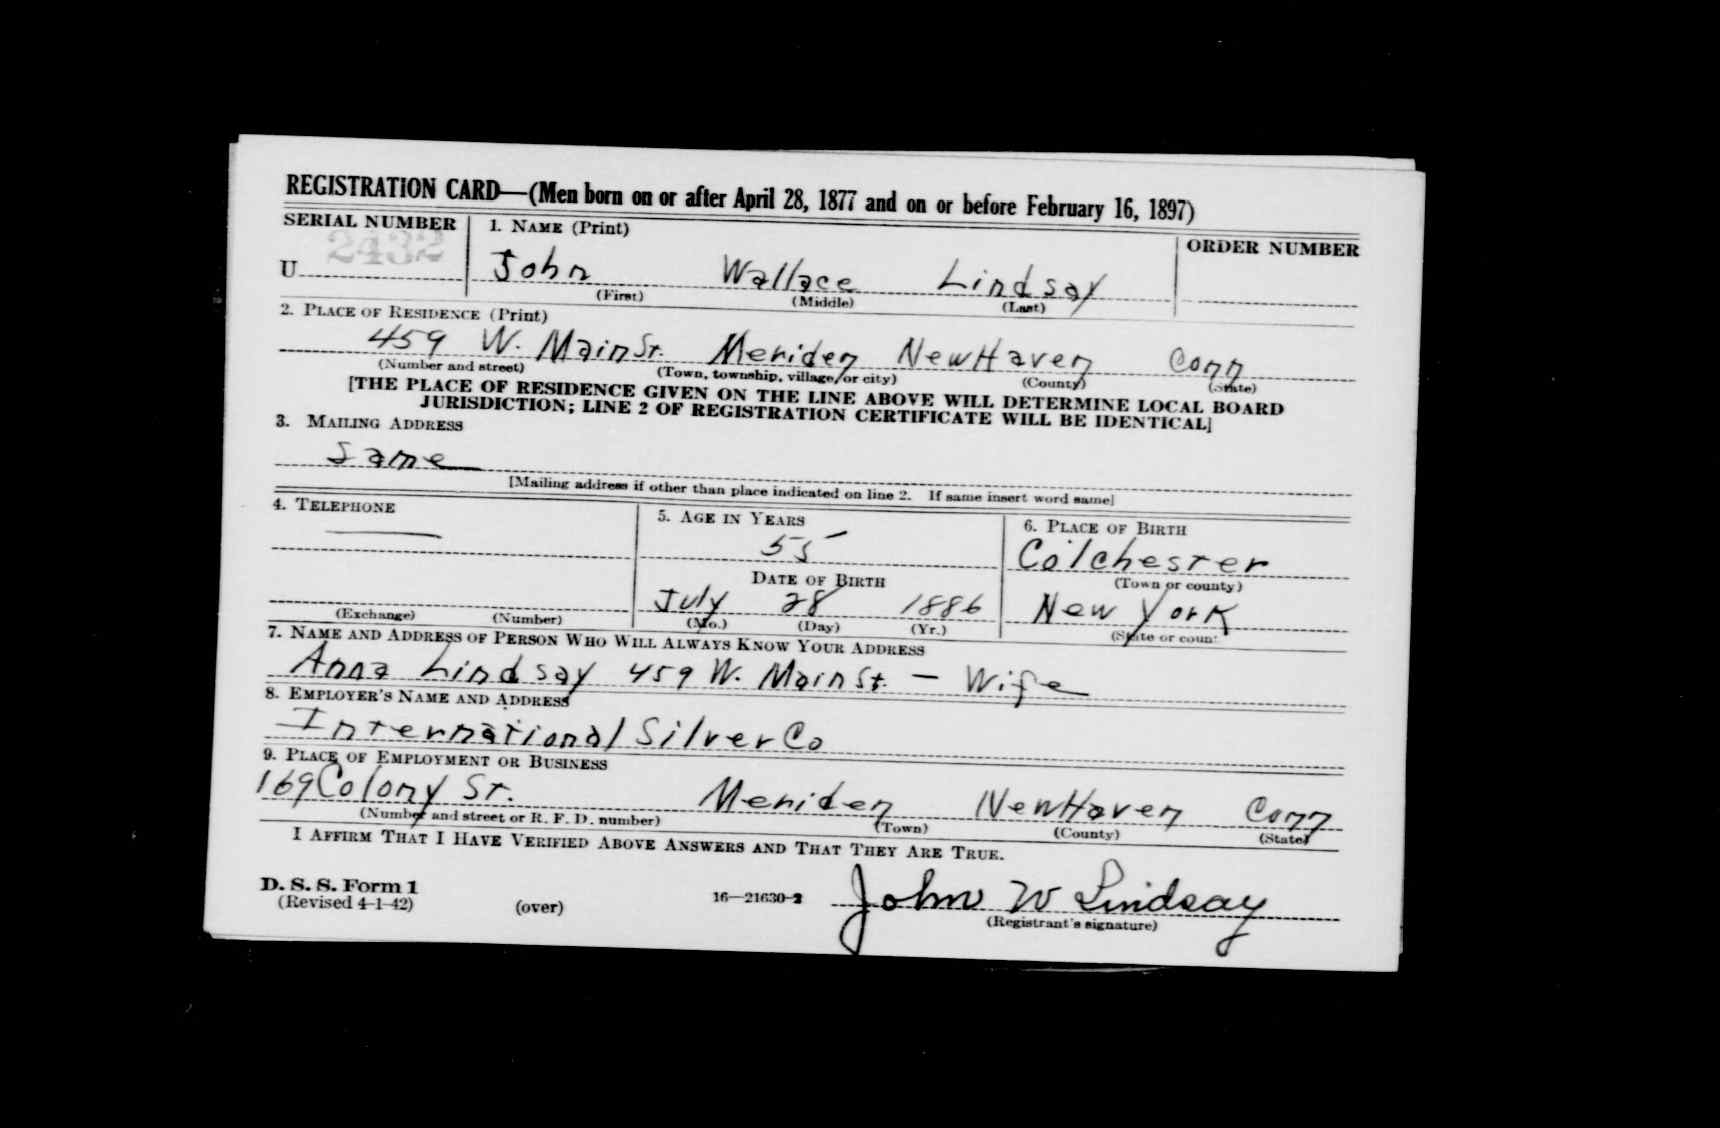 REGISTRATION CARD—(Men born on or after April 28, 1877 and on or before February 16, 1897)
SERIAL NUMBER 1. NAME (Print) ORDER NUMBER
U 2432 John Wallace Lindsay
(First) (Middle) (Last)
2. PLACE OF RESIDENCE (Print)
459 W. Main St. Meriden New Haven Conn
(Number and street) (Town, township, village, or city) (County) (State)
[THE PLACE OF RESIDENCE GIVEN ON THE LINE ABOVE WILL DETERMINE LOCAL BOARD
JURISDICTION; LINE 2 OF REGISTRATION CERTIFICATE WILL BE IDENTICAL]
3. MAILING ADDRESS
Same
[Mailing address if other than place indicated on line 2. If same insert word same]
4. TELEPHONE 5. AGE IN YEARS 6. PLACE OF BIRTH
55 Colchester
DATE OF BIRTH (Town or county)
July 28 1886 New York
(Exchange) (Number) (Mo.) (Day) (Yr.) (State or count
7. NAME AND ADDRESS OF PERSON WHO WILL ALWAYS KNOW YOUR ADDRESS
Anna Lindsay 459 W. Main St. — Wife
8. EMPLOYER'S NAME AND ADDRESS
International Silver Co
9. PLACE OF EMPLOYMENT OR BUSINESS
169 Colony St. Meriden New Haven Conn
(Number and street or R. F. D. number) (Town) (County) (State)
I AFFIRM THAT I HAVE VERIFIED ABOVE ANSWERS AND THAT THEY ARE TRUE.
D. S. S. Form 1
(Revised 4-1-42) (over) 16—21630-2 John W Lindsay
(Registrant's signature)